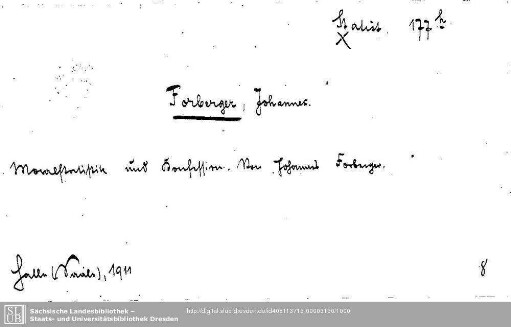 Statist. 177 h
X
Forberger, Johannes.
Moralstatistik und Konfession. Von Johannes Forberger.
Halle (Saale), 1911
8
Sächsische Landesbibliothek –
Staats- und Universitätsbibliothek Dresden